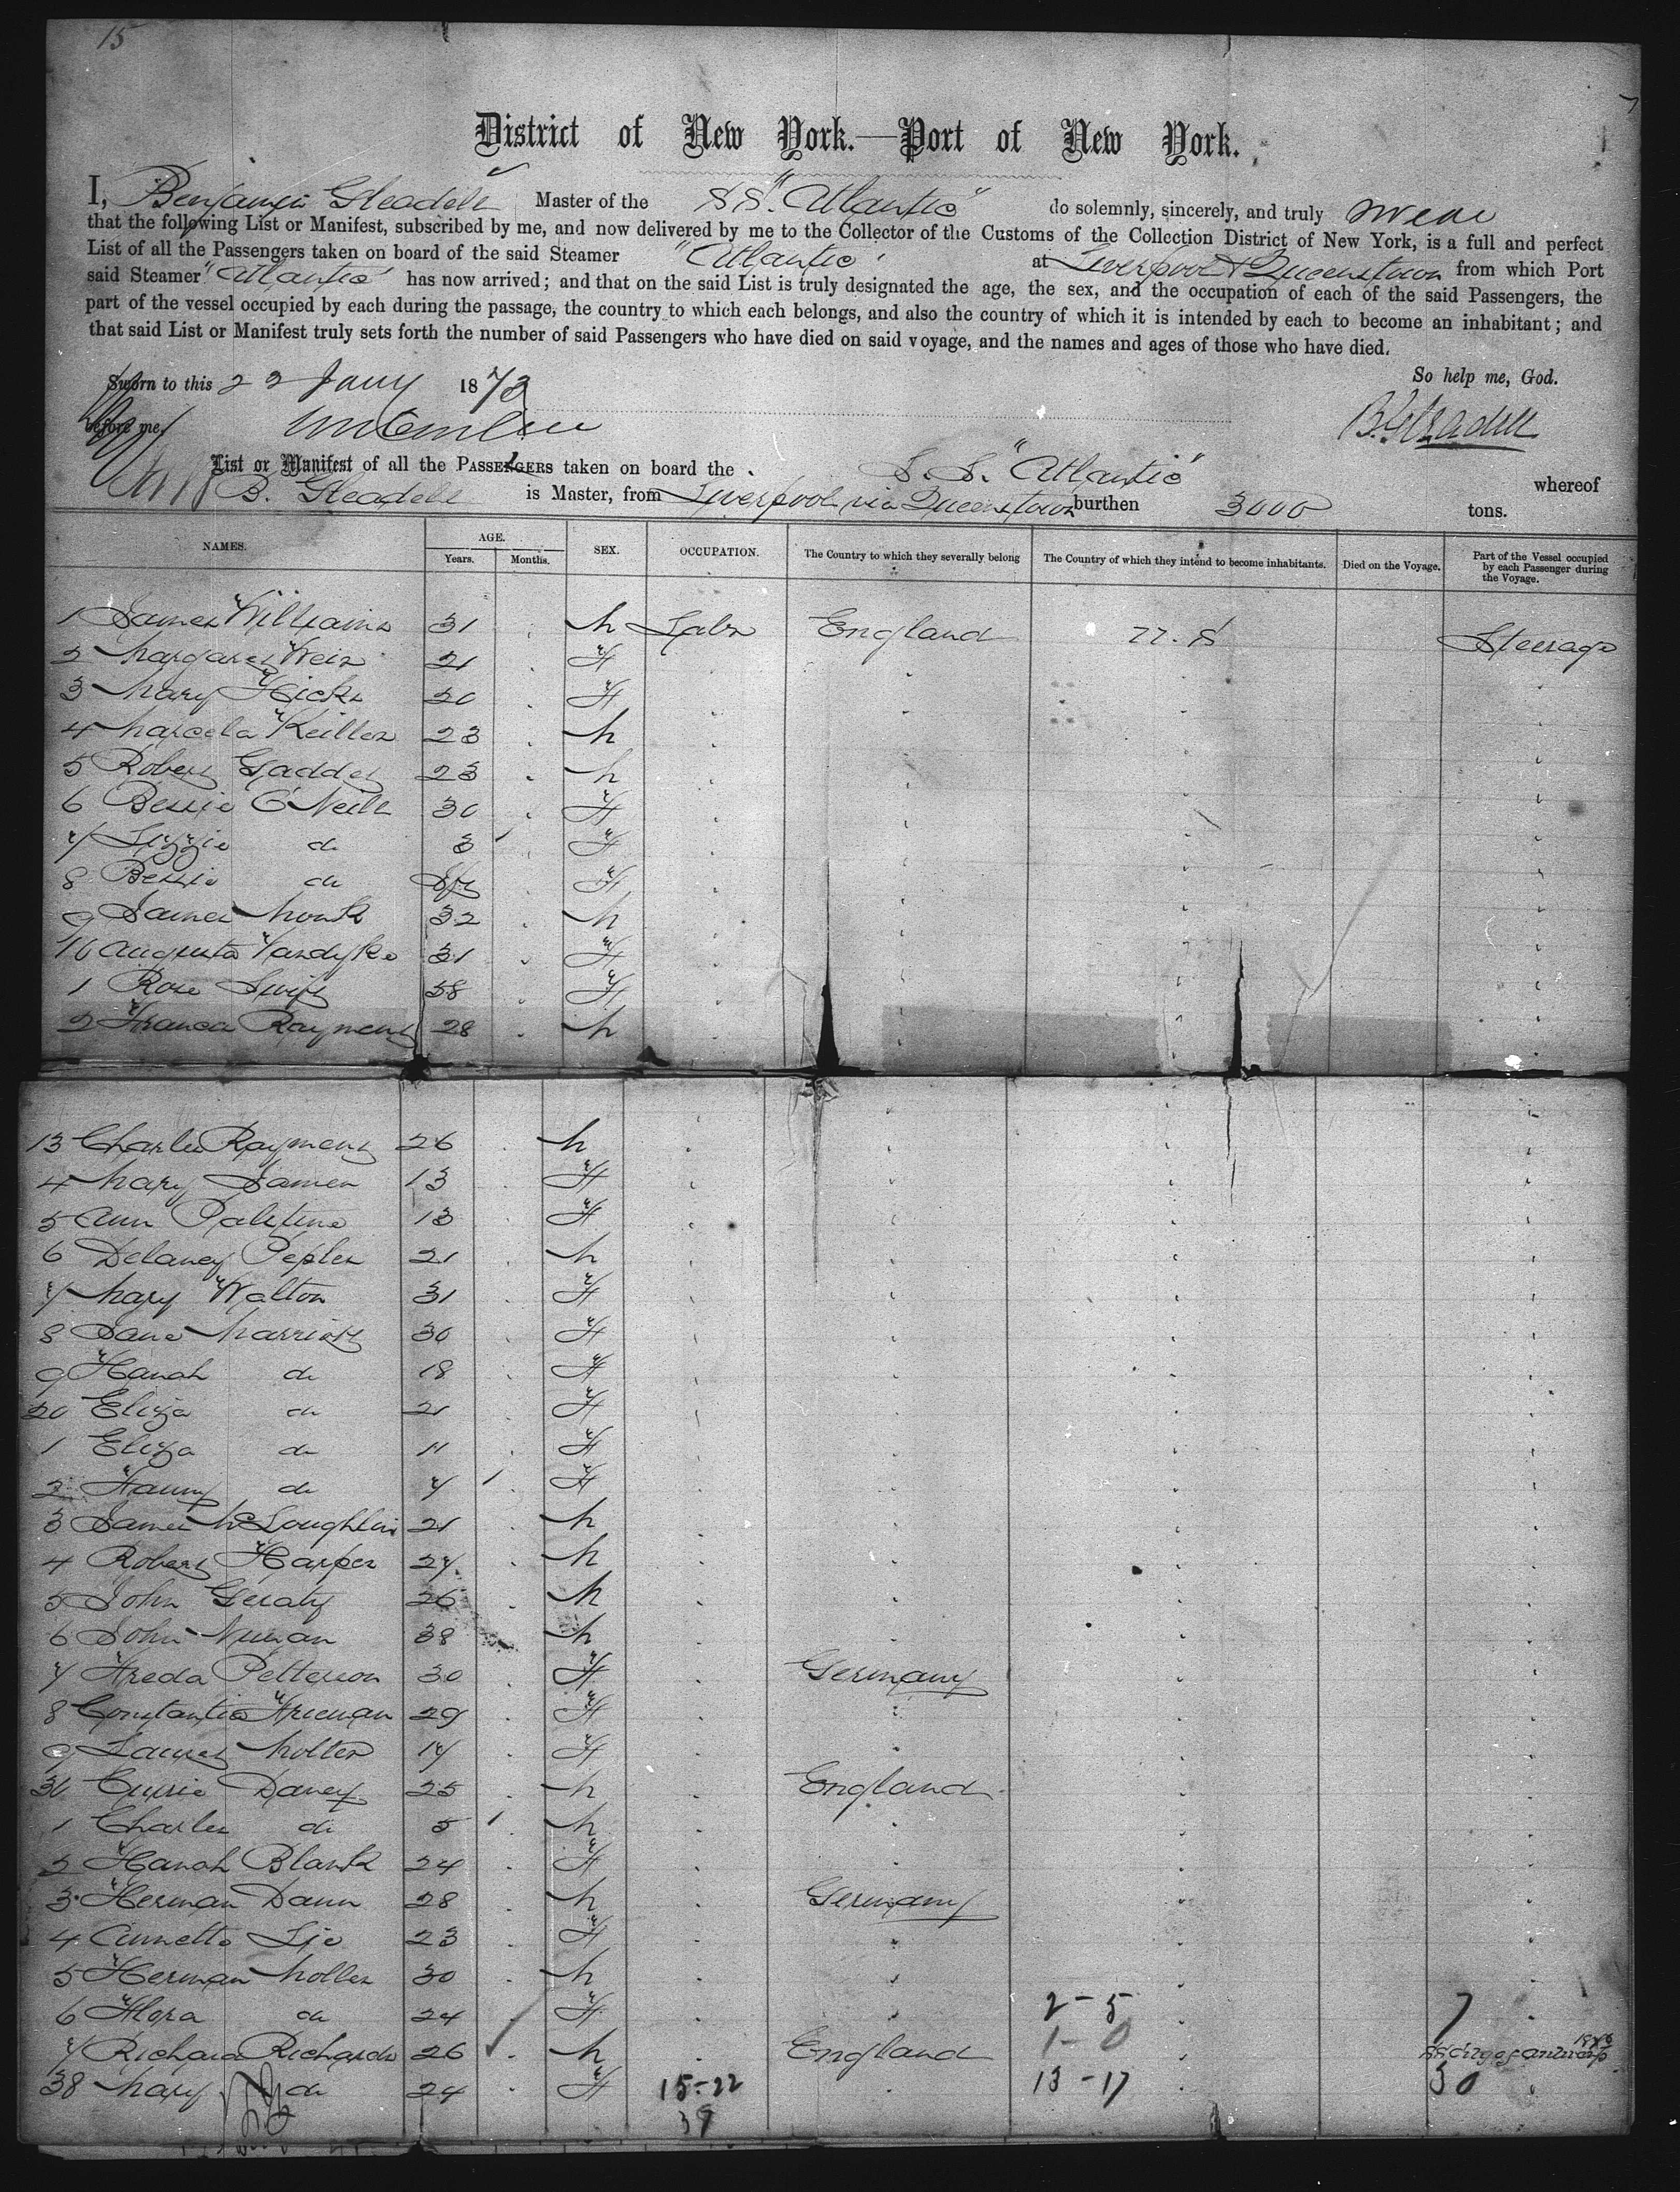 15
District of New York.—Port of New York.
I, Benjamin Gleadell Master of the SS. "Atlantic" do solemnly, sincerely, and truly swear
that the following List or Manifest, subscribed by me, and now delivered by me to the Collector of the Customs of the Collection District of New York, is a full and perfect
List of all the Passengers taken on board of the said Steamer "Atlantic" at Liverpool & Queenstown from which Port
said Steamer "Atlantic" has now arrived; and that on the said List is truly designated the age, the sex, and the occupation of each of the said Passengers, the
part of the vessel occupied by each during the passage, the country to which each belongs, and also the country of which it is intended by each to become an inhabitant; and
that said List or Manifest truly sets forth the number of said Passengers who have died on said voyage, and the names and ages of those who have died.
Sworn to this 22 Jany 1873 So help me, God.
before me, B. Gleadell
List or Manifest of all the PASSENGERS taken on board the S. S. "Atlantic" whereof
B. Gleadell is Master, from Liverpool via Queenstown burthen 3000 tons.
NAMES. AGE. Years. Months. SEX. OCCUPATION. The Country to which they severally belong The Country of which they intend to become inhabitants. Died on the Voyage. Part of the Vessel occupied by each Passenger during the Voyage.
1 James Williams 31 M Labr England U. S Steerage
2 Margaret Weir 21 F
3 Mary Hicks 20 F
4 Marcela Keiller 23 M
5 Robert Gaddes 23 M
6 Bessie O'Neill 30 F
7 Lizzie do 3 F
8 Bessie do Inft F
9 James Monk 32 M
10 Augusta Vandyke 31 F
1 Rose Swift 58 F
2 Frances Rayment 28 M
13 Charles Rayment 26 M
4 Mary James 13 F
5 Ann Palstine 13 F
6 Delaney Pepler 21 M
7 Mary Walton 31 F
8 Jane Marriott 30 F
9 Hanah do 18 F
20 Eliza do 21 F
1 Eliza do 11 F
2 Fanny do 7 F
3 James McLoughlin 21 M
4 Robert Harper 27 M
5 John Geraty 26 M
6 John Nunan 38 M
7 Freda Petterson 30 F Germany
8 Constantia Freeman 29 F
9 Molter 17 F
30 Davey 25 M England
1 Charles do 5 M
2 Hanah Blank 24 F
3 Herman Dann 28 M Germany
4 Annette Lie 23 F
5 Herman Moller 30 M
6 Flora do 24 F 2-5 7
7 Richard Richards 26 M England 1-0
38 Mary do 24 F 15-22 13-17 30
39